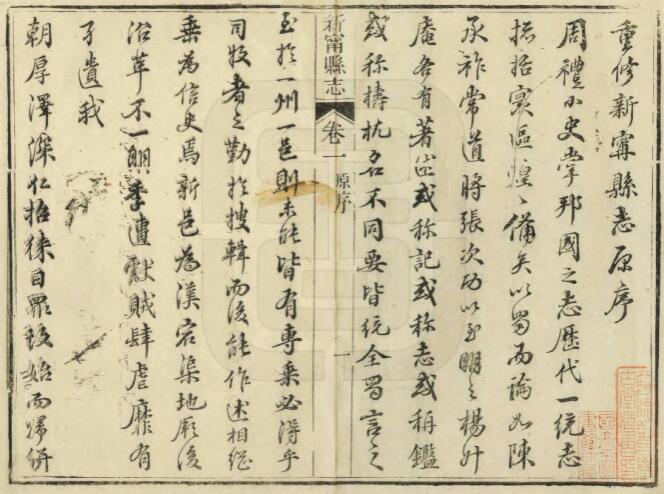 重修新寗縣志原序
周禮小史掌邦國之志歷代一統志
括寰區煌〻備矣以蜀而論如陳
承祚常道將張次功以至明之楊升
菴各有著出或称記或称志或称鑑
或称檮杌名不同要皆統全蜀言之
新甯縣志 卷一 原序 一
至於一州一邑則未能皆有專乗必得乎
司牧者之勤於搜輯而後能作述相繼
乗為信史焉新邑為漢宕渠地厥後
沿革不一明季遭獻賊肆虐靡有
孑遺我
朝厚澤深仁招徠目墾殘始而歸併